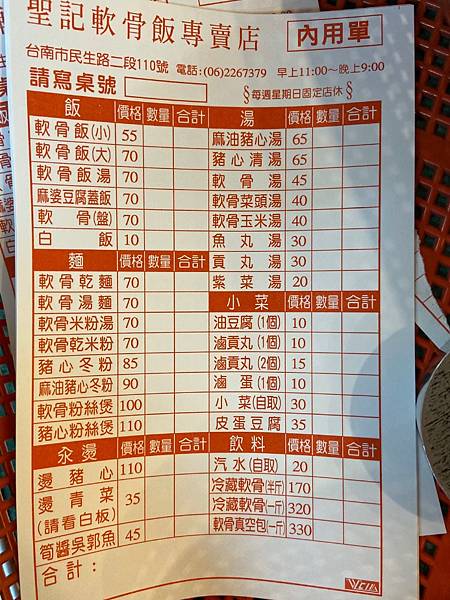 聖記軟骨飯專賣店 內用單
台南市民生路二段110號 電話:(06)2267379 早上11:00～晚上9:00
請寫桌號 §每週星期日固定店休§
飯 價格 數量 合計
軟骨飯(小) 55
軟骨飯(大) 70
軟骨飯湯 70
麻婆豆腐蓋飯 70
軟骨(盤) 70
白飯 10
麵 價格 數量 合計
軟骨乾麵 70
軟骨湯麵 70
軟骨米粉湯 70
軟骨乾米粉 70
豬心冬粉 85
麻油豬心冬粉 90
軟骨粉絲煲 100
豬心粉絲煲 110
汆燙 價格 數量 合計
燙豬心 110
燙青菜 35
(請看白板)
筍醬吳郭魚 45
合計:
湯
麻油豬心湯 65
豬心清湯 65
軟骨湯 45
軟骨菜頭湯 40
軟骨玉米湯 40
魚丸湯 30
貢丸湯 30
紫菜湯 20
小菜 價格 數量 合計
油豆腐(1個) 10
滷貢丸(1個) 10
滷貢丸(2個) 15
滷蛋(1個) 10
小菜(自取) 30
皮蛋豆腐 35
飲料 價格 數量 合計
汽水(自取) 20
冷藏軟骨(半斤) 170
冷藏軟骨(一斤) 320
軟骨真空包(一斤) 330